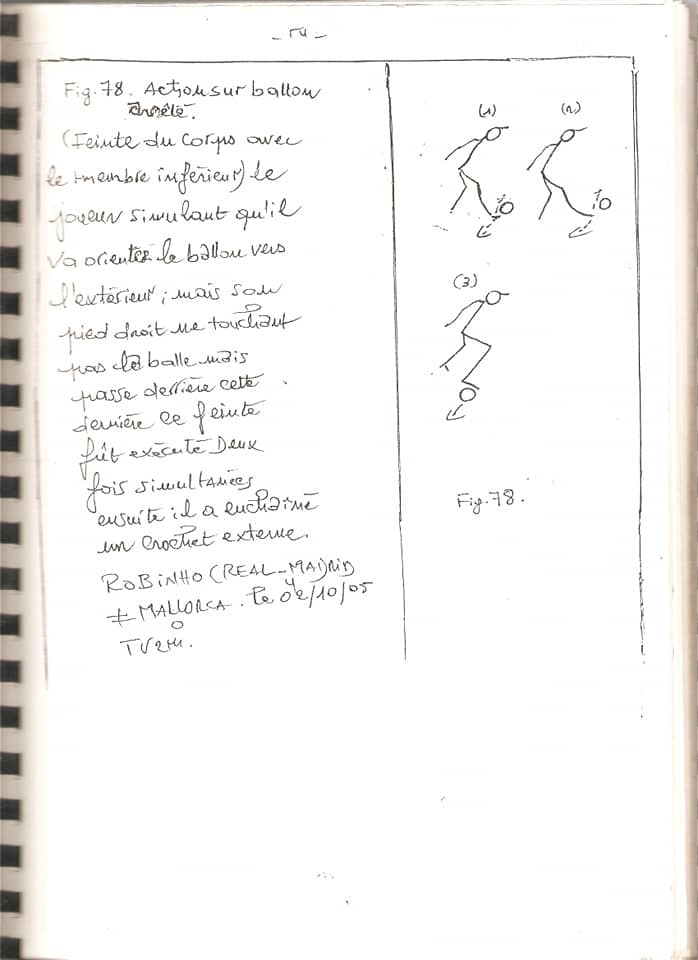 _ 54 _
Fig.78. Action sur ballon
arrêté.
(Feinte du corps avec
le membre inférieur) le
joueur simulant qu'il
va orienter le ballon vers
l'extérieur ; mais son
pied droit ne touchant
pas la balle mais
passe derrière cette
dernière ce feinte
fût exécuté Deux
fois simultanées
ensuite il a enchaîné
un crochet externe.
ROBINHO (REAL-MADRID
≠ MALLORCA. Le 02/10/05
TV2M.
(1) (2)
(3)
Fig.78.